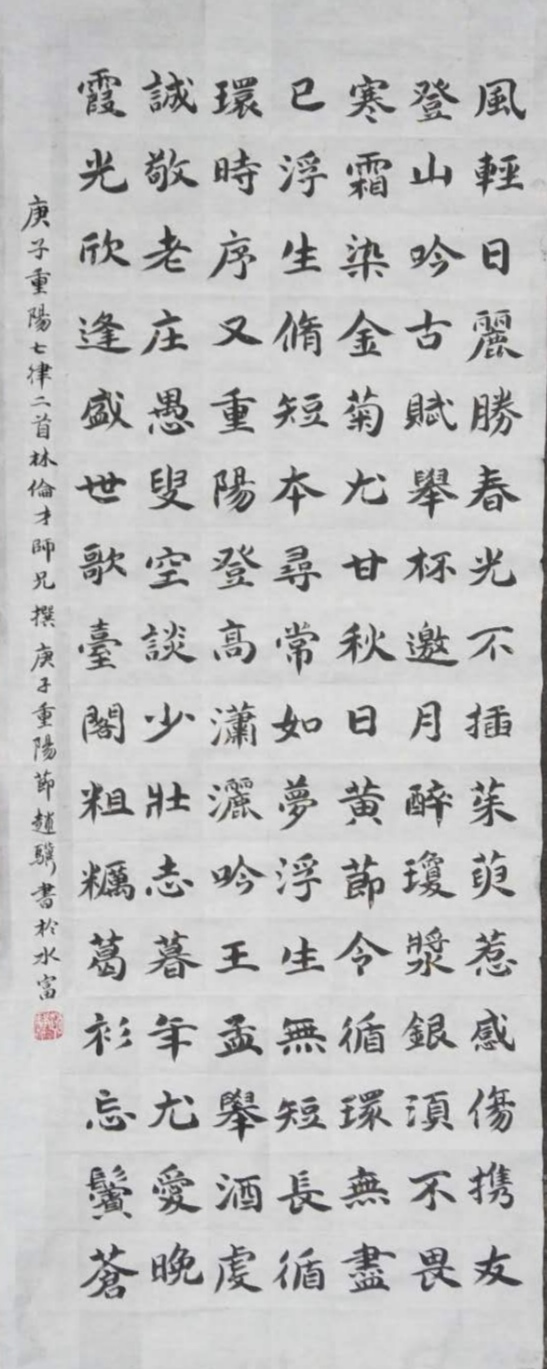 風輕日麗勝春光不插茱萸惹感傷携友
登山吟古賦舉杯邀月醉瓊漿銀湏不畏
寒霜染金菊尤甘秋日黄節令循環無盡
已浮生脩短本尋常如夢浮生無短長循
環時序又重陽登高瀟灑吟王孟舉酒虔
誠敬老庄愚叟空談少壯志暮年尤愛晚
霞光欣逢盛世歌臺閣粗糲葛衫忘鬢蒼
庚子重陽七律二首林倫才師兄撰 庚子重陽節趙驥書於水富